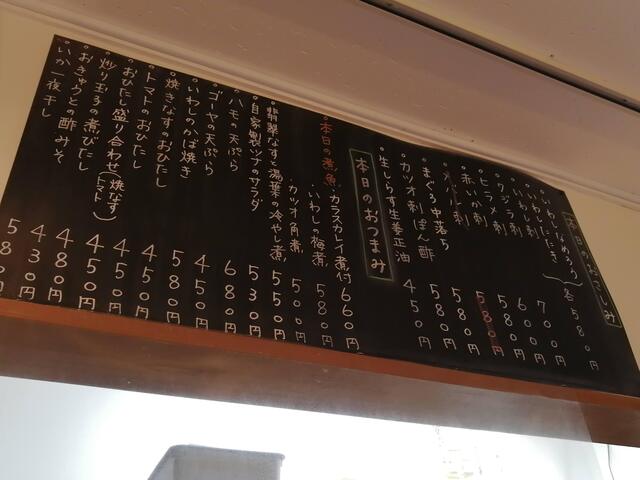 本日のおさしみ
。いわしなめろう 各580円
。いわしたたき
。いわし刺 700円
。クジラ刺 600円
。ヒラメ刺 580円
。赤いか刺 580円
。まぐろ中落ち 580円
。カツオ刺ぽん酢 580円
。生しらす生姜正油 450円
本日のおつまみ
。本日の煮魚…カラスカレイ煮付 660円
…いわしの梅煮 580円
カツオ角煮
。翡翠なすと湯葉の冷やし煮 530円
。自家製ツナのサラダ 550円
。ハモの天ぷら 680円
。ゴーヤの天ぷら 450円
。いわしのかば焼き 580円
。焼きなすのおひたし 450円
。トマトのおひたし 450円
。おひたし盛り合わせ(焼なす・トマト) 480円
。炒り玉子の煮びたし 430円
。おきゅうとの酢みそ 480円
。いか一夜干し 580円